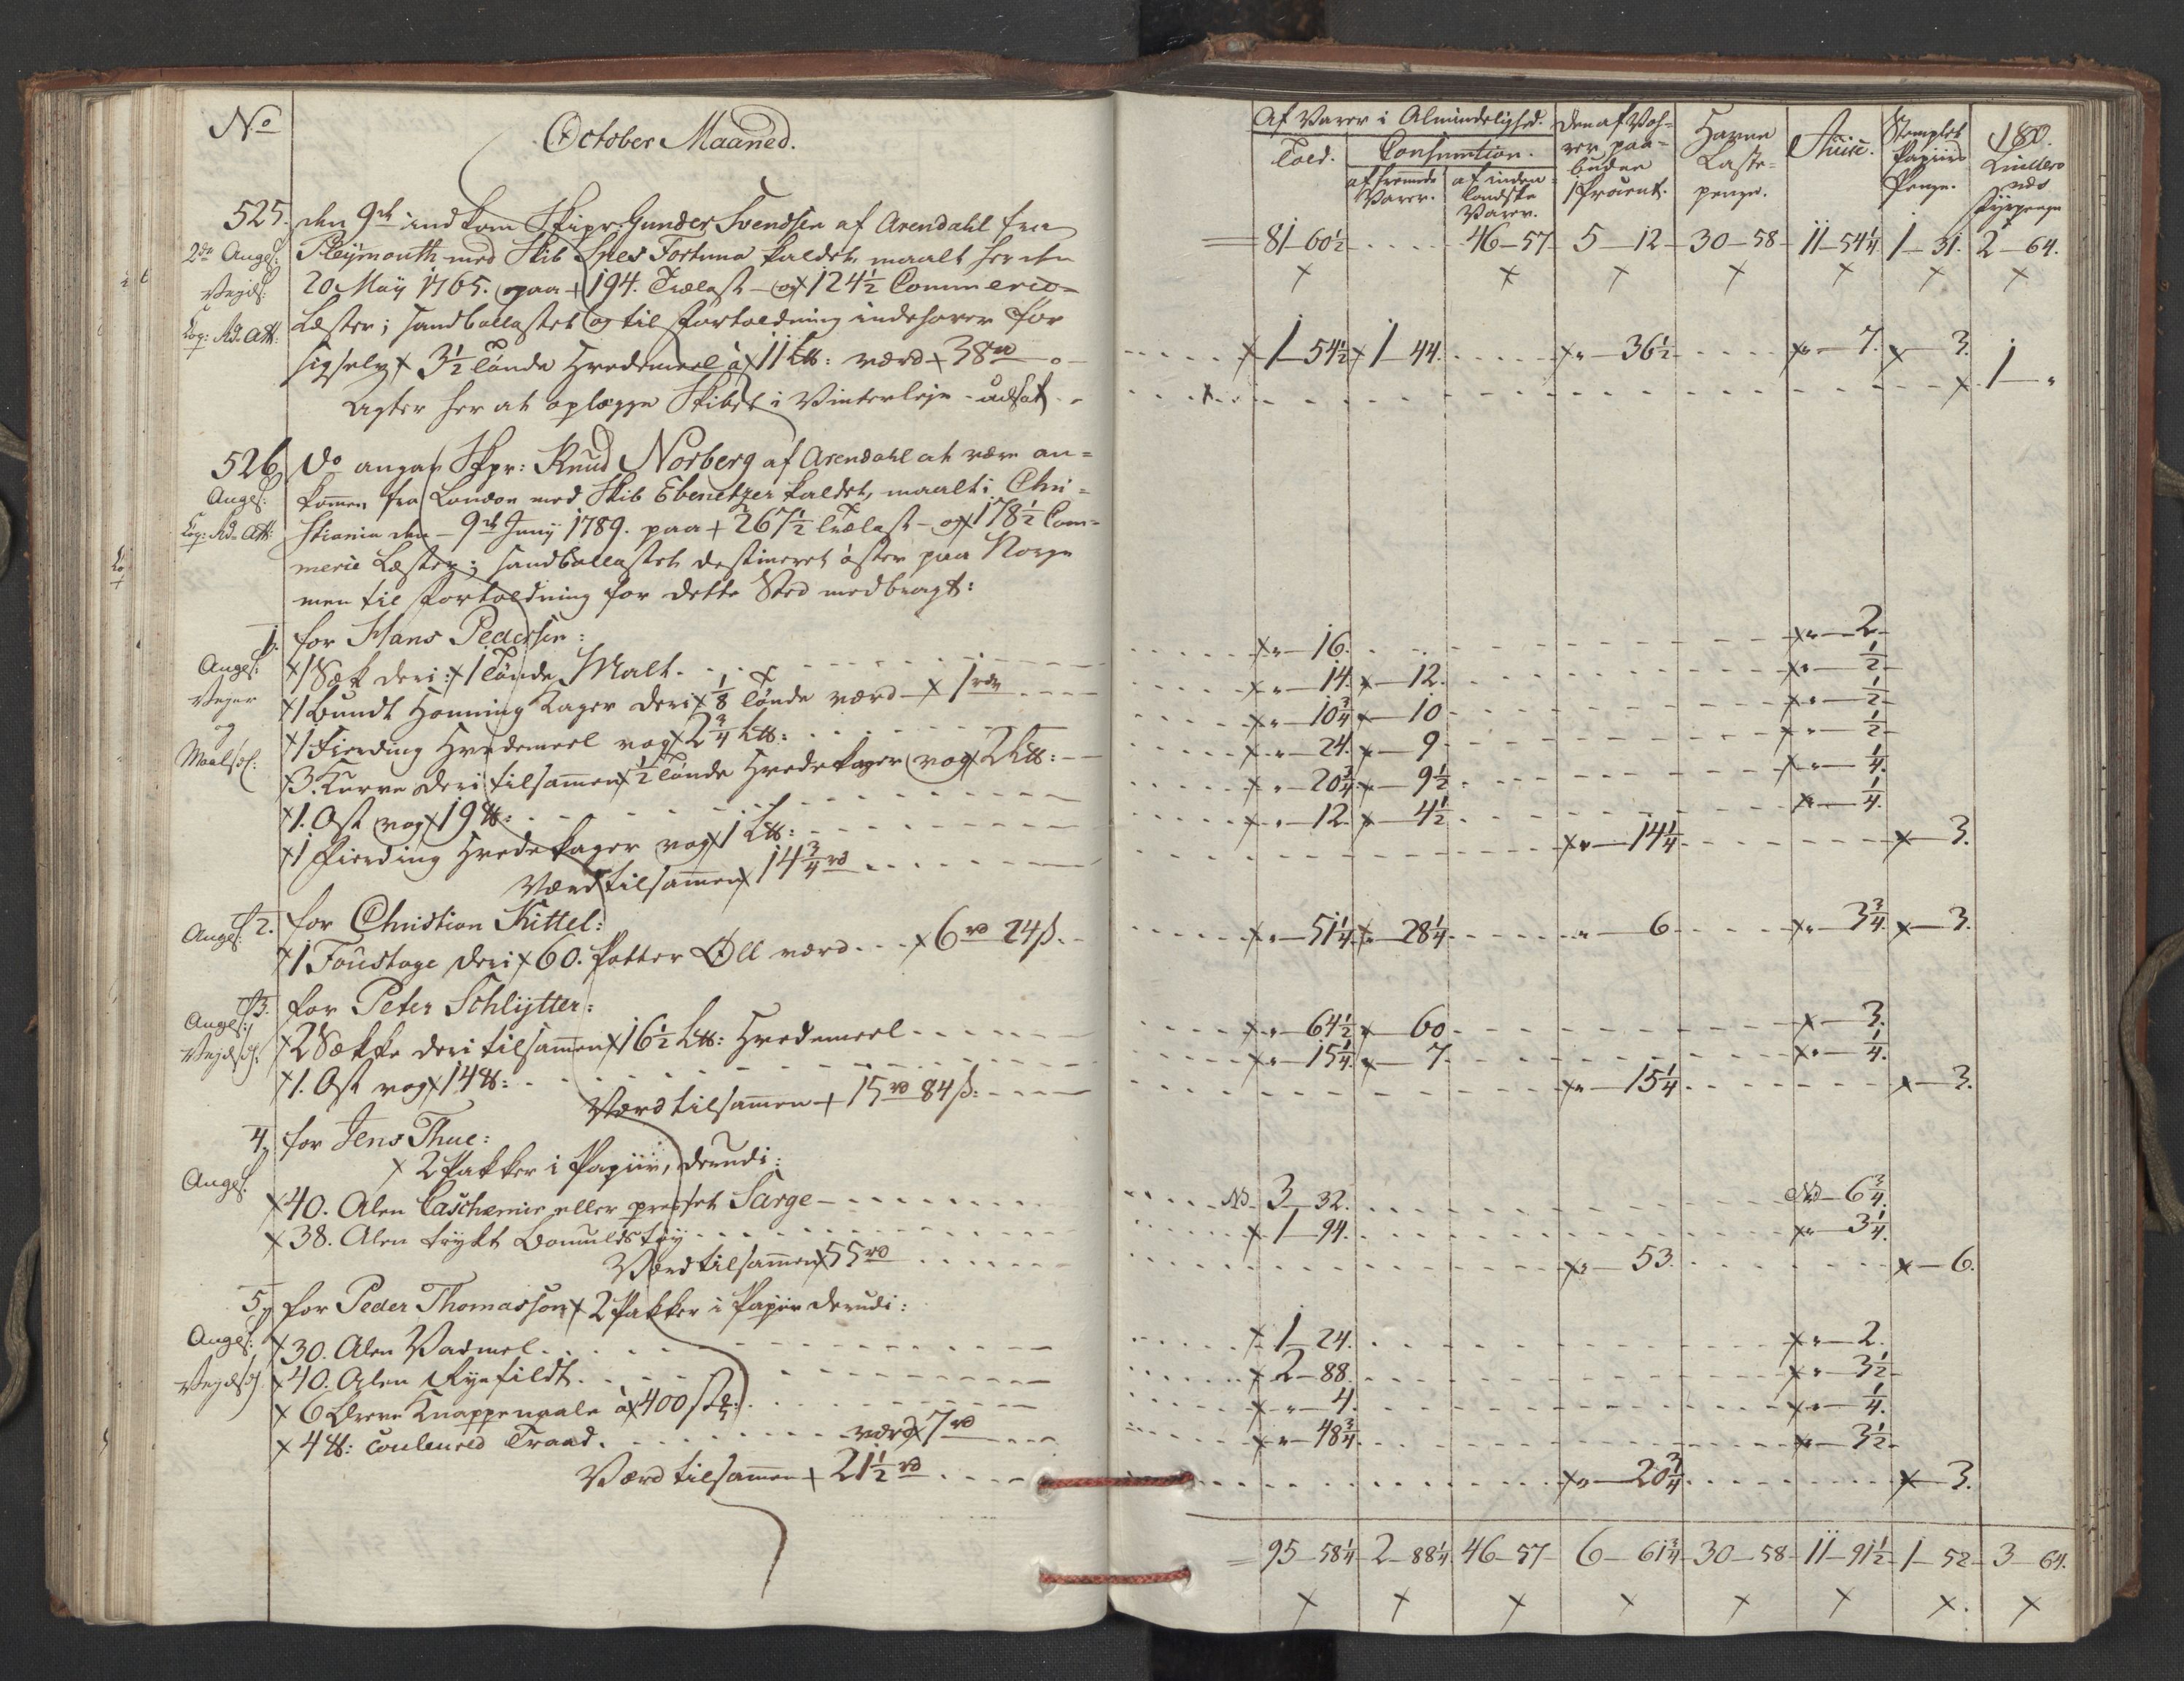 No
October Maaned.
525. den 9de indkom Skipr: Gunder Svendsen af Arendahl fra
2de Anges: Pleymouth med Skib Snes Fortuna kaldet maalt her den
Vejeds: 20 Maii 1765. paa + 194. Trælæst - og x 124½ Commercie-
Læster; Sandballastet og til Fortoldning indehaver for
sig selv x 3½ Tønde Hvedemeel à x 11 L℔: værd x 38 rd
Agter her at oplægge Skibet i Vinterleje - udsat
526, Do angav Skpr: Knud Norberg af Arendahl at være an=
Anges: kommen fra London med Skib Ebenetzer kaldet, maalt i Chri=
stiania den 9de Junij 1789. paa + 267½ Trælæst - og x 178½ Com=
mercie Læster; Sandballastet destineret øster paa Norge
men til Fortoldning for dette Sted medbragt:
1. for Hans Pedersen:
Anges: x 1 Sæk deri: x 1 Tønde Malt.
Vejer x 1 Bundt Honning Kager deri x ⅛ Tønde værd x 1 rdr
og x 1 Fierding Hvedemeel vog x 2¾ L℔:
Maalsed: x 3. Kurve deri tilsammen x ½ Tønde Hvedekager vog x 2 L℔:
x 1. Ost vog x 19 ℔:
x 1 Fierding Hvedekager vog x 1 L℔:
Værd tilsammen x 14¾ rd
2. for Christian Kittel:
Anges: x 1 Foustage deri x 60. Potter Øll værd x 6 rd 24 ß.
3. for Peter Schlÿtter:
Anges: x 2 Sække deri tilsammen x 16½ L℔: Hvedemeel
Vejeds: x 1. Ost vog x 14 ℔:
Værd tilsammen + 15 rd 84 ß:
4, for Jens Thue:
x 2 Pakker i Papiir, derudi:
Anges: x 40. Alen Caschemir eller presset Sarge
x 38. Alen trykt Bomulds tøy
Værd tilsammen x 55 rd
5, for Peder Thomasson x 2 Pakker i Papiir derudi:
Anges: x 30. Alen Vadmel.
Vejeds: x 40. Alen Ryefildt.
x 6 Breve Knappenaale à x 400 st:
x 4 ℔: couleured Traad. værd x 7 rd
Værd tilsammen + 21½ rd
Af Varer i Almindelighed.
Told.
Consumtion.
af fremmede Varer.
af inden=landske Varer.
Den af Vah=rer paa=budne 1 Procent.
Havne Laste=penge.
Accise.
Stemplet Papiirs Penge.
180.
= 81-60½ 46-57 5-12 30-58 11-54¼ 1-31. 2-64.
x x x x x x x
x 1-54½ x 1-44. x "-36½ x "-7. x 3.
x 1-"
x "-16. x "-2
x "-14. x-12. x "-½
x "-10¾ x-10 x "-½
x "-24. x-9 x "-½
x "-20¾ x-9½ x "-¼.
x "-12. x-4½ x "-¼.
x "-14¼ x-3.
x "-51¼ x "-28¼ "-6 x "-3¾ x-3.
x "-64½ x-60 x-3.
x "-15¼ x-7. x "-¼.
x "-15¼ x-3.
NB 3-32. NB-6¾.
x 1-94. x "-3¼.
x "-53. x-6.
x 1-24. x "-2.
x 2-88. x "-3½
x "-4. x "-¼.
x "-48¾ x "-3½
x "-20¾ x-3.
= 95-58¼ 2-88¼ 46-57 6-61¾ 30-58 11-91½ 1-52 3-64.
x x x x x x x. x